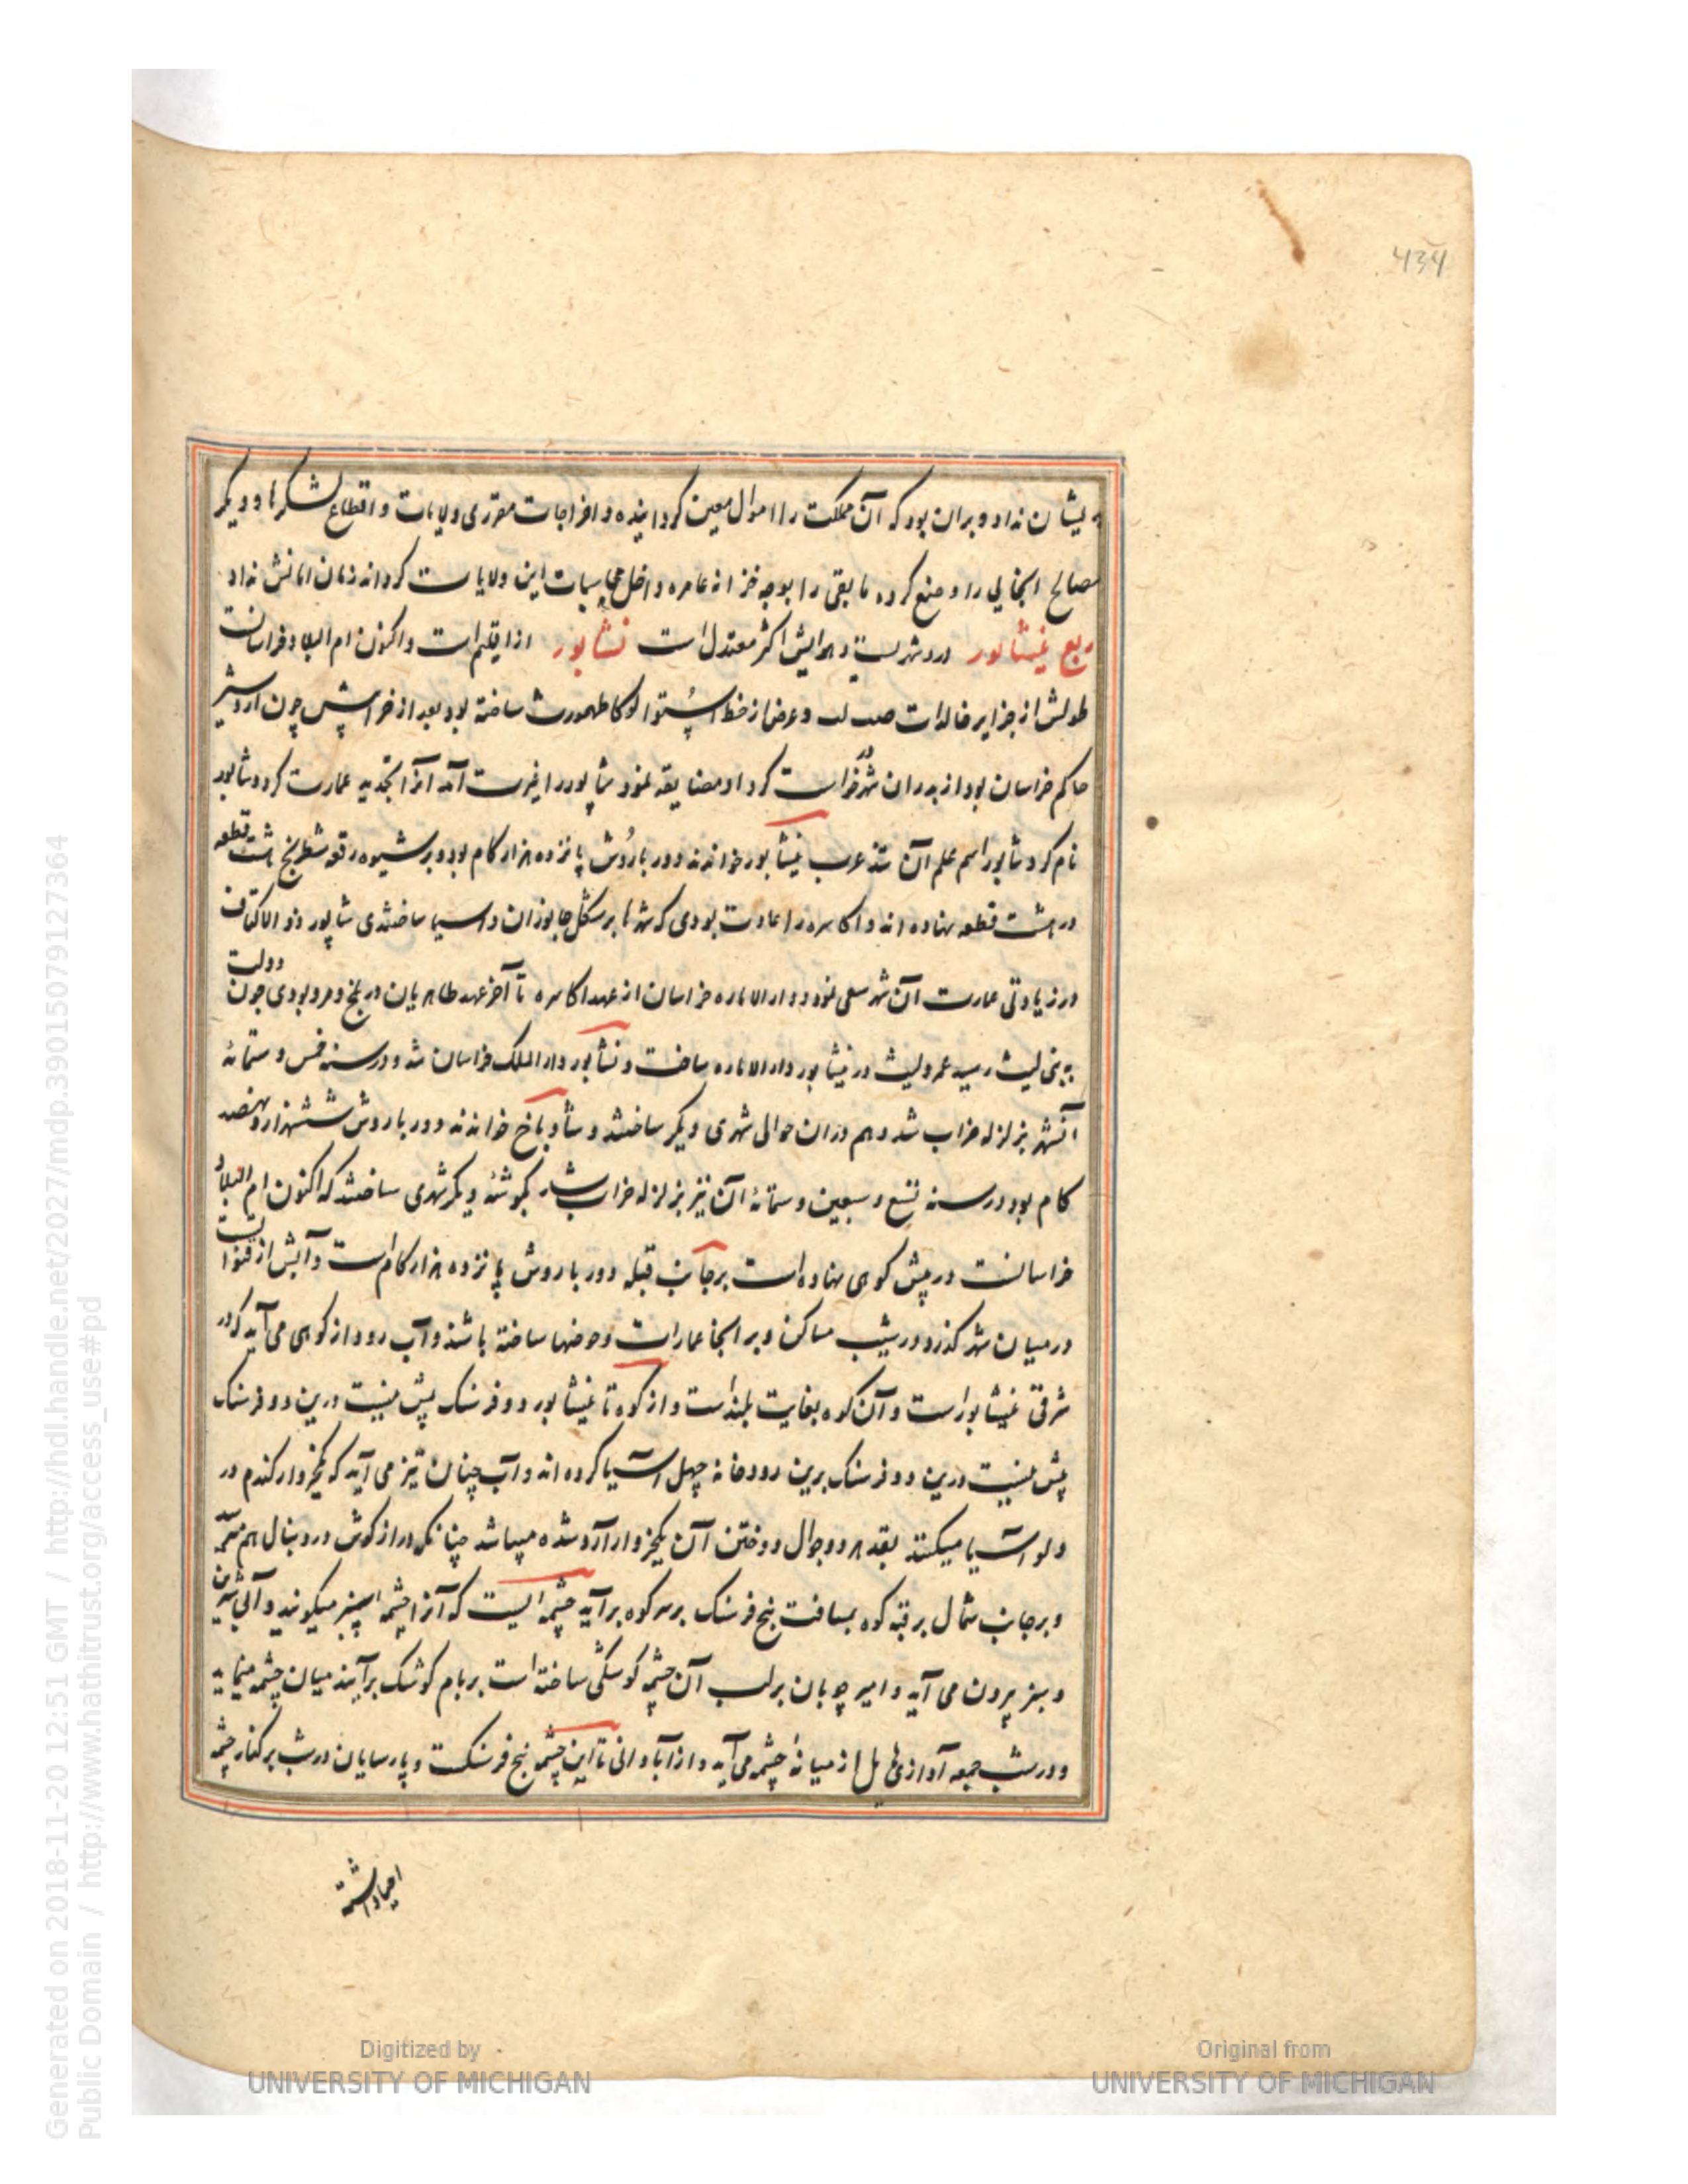 434
ایشان نداد و بران بود که آن مملکت را اموال معین گردانیده و اخراجات مقرری ولایات و اقطاع لشکرها و دیگر
مصالح آنجایی را وضع کرده مابقی را بوجه خزانه عامره داخل محاسبات این ولایات گرداند زمان امانش نداد
ربع نیشابور درو شهریست و هوایش اکثر معتدل است نشابور از اقلیم است و اکنون ام البلاد خراسانت
طولش از جزایر خالدات صب ل و عرض از خط استوا لو کا طهمورث ساخته بود بعد از خرابیش چون اردشیر
حاکم خراسان بود از پدر آن شهر در خواست کرد او مضایقه نمود شاپور را غیرت آمد آنرا تجدید عمارت کرد و شاپور
نام کرد شاپور اسم علم آن شد عرب نیشابور خواندند دور باروش پانزده هزار کام بود و بر شیوه رقعه شطرنج هشت قطعه
در هشت قطعه نهاده اند و اکاسره را عادت بودی که شهرها بر شکل جانوران و اسیا ساختندی شاپور ذو الاکتاف
در زیادتی عمارت آن شهر سعی نمود و دار الاماره خراسان از عهد اکاسره تا آخر عهد طاهریان در بلخ و مرو بودی چون دولت
به بنی لیث رسید عمرو لیث در نیشابور دار الاماره ساخت و نشابور دار الملک خراسان شد و در سنه خمس و ستمائه
آنشهر بزلزله خراب شد و هم دران حوالی شهری دیگر ساختند و شادیاخ خواندند دور باروش ششهزار و نهصد
کام بود در سنه تسع و سبعین و ستمائه آن نیز بزلزله خراب شد بگوشه دیگر شهری ساختند که اکنون ام البلاد
خراسانست در پیش کوهی نهاده است بر جانب قبله دور باروش پانزده هزار کام است و آبش از قنواتست
در میان شهر گذرد و در شیب مساکن و بر آنجا عمارات و حوضها ساخته باشند و آب رود از کوهی می آید که در
شرقی نیشابور است و آن کوه بغایت بلند است و از کوه تا نیشابور دو فرسنگ پیش نیست درین دو فرسنگ
پیش نیست درین دو فرسنگ برین رودخانه چهل آسیا کرده اند و آب چنان تیز می آید که یکخروار کندم در
دلو آسیا میکنند بقدر دو جوال دوختن آن یکخروار آرد شده میباشد چنانکه دراز گوش در دنبال هم
و بر جانب شمال بر قبه کوه بمسافت پنج فرسنگ بر سر کوه برآید چشمه ایست که آنرا چشمه سبز میگویند و آبی شیرین
و سبز بیرون می آید و امیر چوبان بر لب آن چشمه کوشکی ساخته است بر بام کوشک برآیند میان چشمه مینماید
و در شب جمعه آوازهای هایل از میانهٔ چشمه می آید و از آبادانی تا این چشمه پنج فرسنگست و پارسایان در شب بر کنار چشمه
احیا داشته
Digitized by
UNIVERSITY OF MICHIGAN
Original from
UNIVERSITY OF MICHIGAN
Generated on 2018-11-20 12:51 GMT / http://hdl.handle.net/2027/mdp.39015079127364
Public Domain / http://www.hathitrust.org/access_use#pd